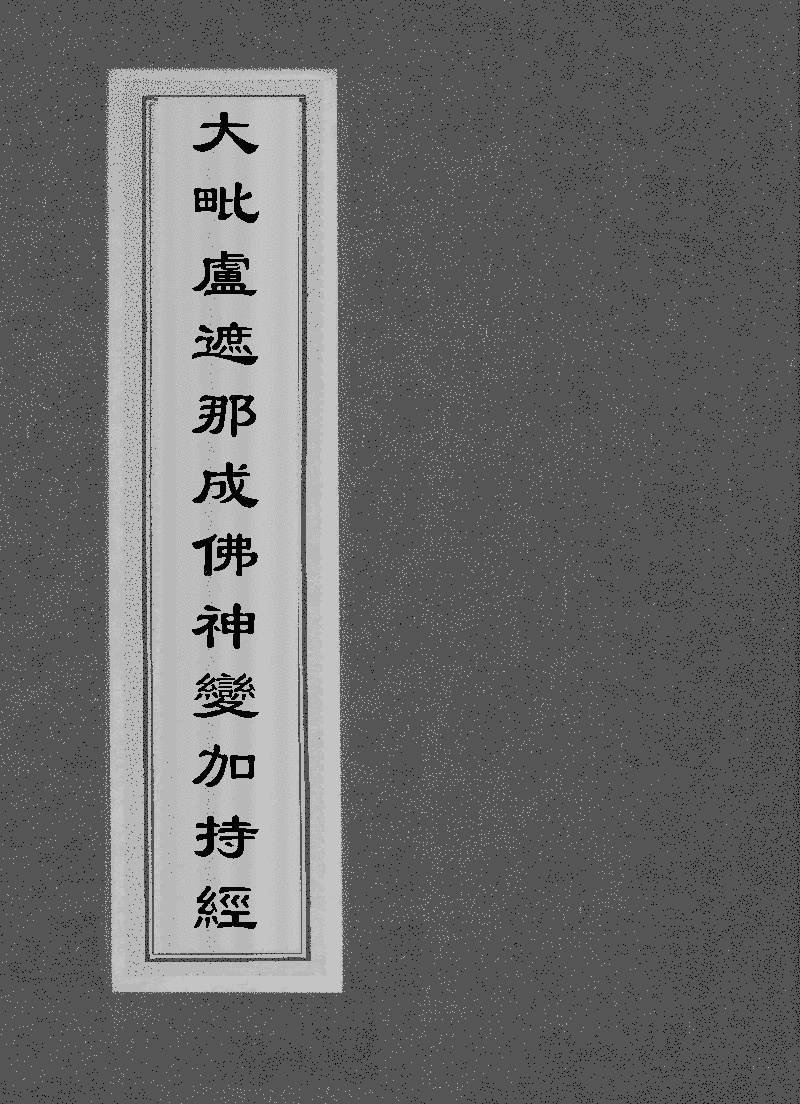 大毗盧遮那成佛神變加持經